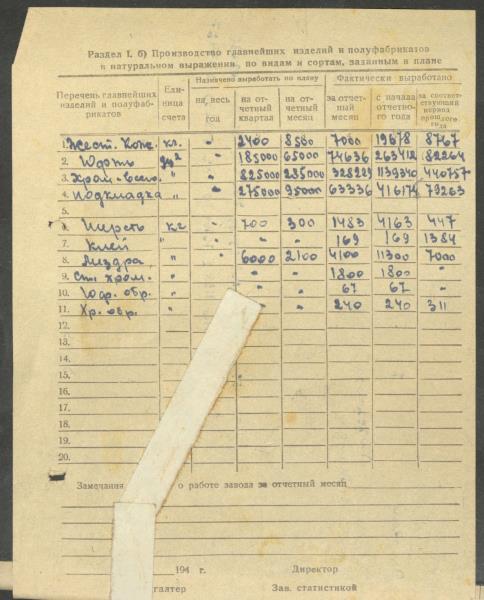 Раздел I. б) Производство главнейших изделий и полуфабрикатов
в натуральном выражении, по видам и сортам, заданным в плане
Перечень главнейших изделий и полуфаб-рикатов
Еди-ница счета
Назначено выработать по плану
Фактически выработано
на весь год
на от-четный квартал
на от-четный месяц
за отчет-ный месяц
с начала отчетно-го года
за соответ-ствующий период прошлого года
1. Жест. Кож. кг. " 2400 8500 7000 19678 8767
2. Юфть дм² " 185000 65000 74636 263412 182264
3. Хром-всего " " 825000 285000 328229 1139340 440757
4. подкладка " " 275000 95000 63336 416174 79263
5.
6. Шерсть кг " 700 300 1483 4163 447
7. Клей " " " " 169 169 1384
8. Мездра " " 6000 2100 4100 11300 7000
9. Сп. хром. " " " 1800 1800 "
10. Юф. обр. " " " 67 67 "
11. Хр. обр. " " 240 240 311
12.
13.
14.
15.
16.
17.
18.
19.
20.
Замечания о работе завода за отчетный месяц
194 г. Директор
галтер Зав. статистикой